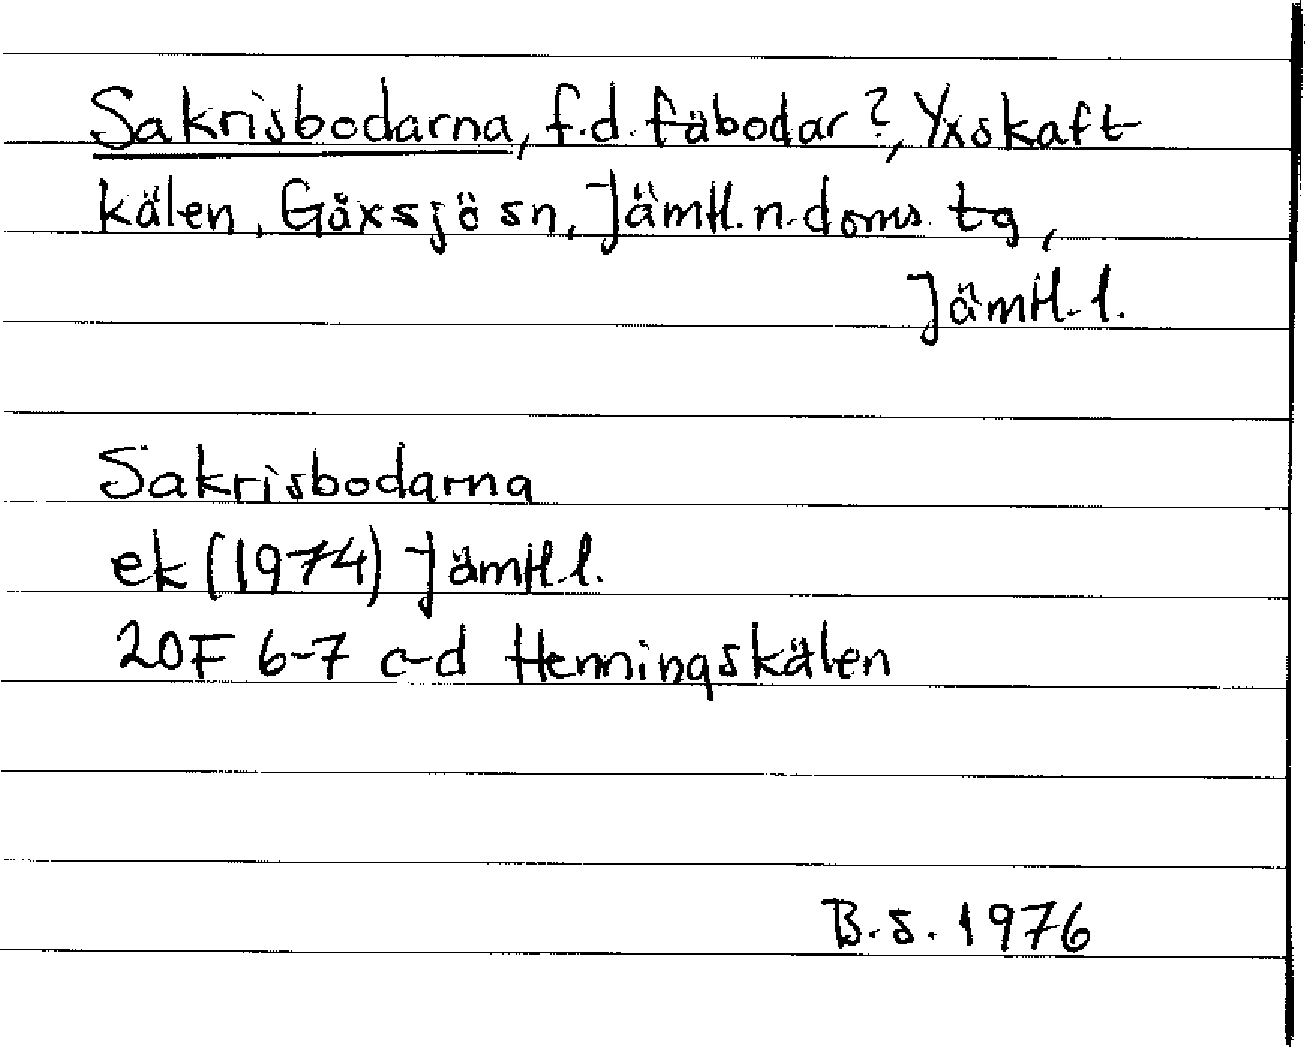 Sakrisbodarna, f.d. fäbodar?, Yxskaft-
kälen, Gåxsjö sn, Jämtl. n. doms. tg,
Jämtl. l.
Sakrisbodarna
ek (1974) Jämtl. l.
20F 6-7 c-d Henningskälen
B.S. 1976